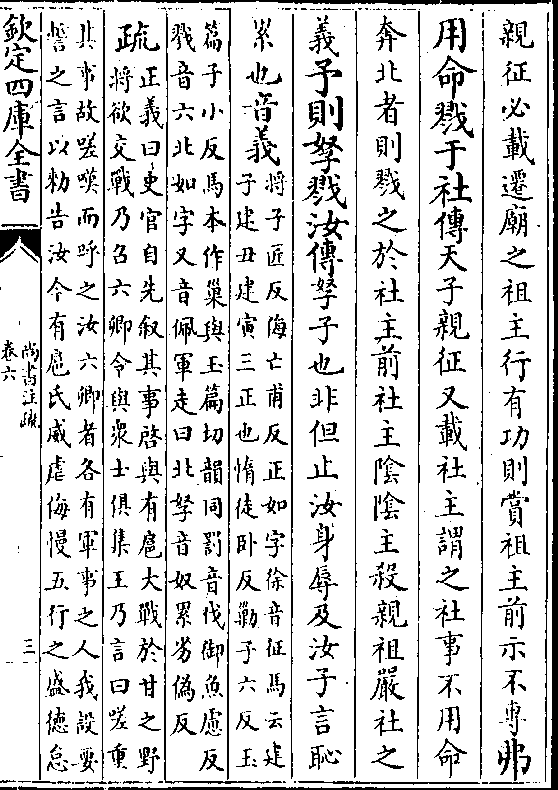 親征必載遷廟之祖主行有功則賞祖主前示不専弗
用命戮于社傳天子親征又載社主謂之社事不用命
奔北者則戮之於社主前社主隂隂主殺親祖嚴社之
義予則孥戮汝傳孥子也非但止汝身辱及汝子言恥
累也音義
將子匠反侮亡甫反正如字徐音征馬云建
子建丑建寅三正也惰徒卧反勦子六反玉
篇子小反馬本作巢與玉篇切韻同罰音伐御魚慮反
戮音六北如字又音佩軍走曰北孥音奴累劣偽反
疏
正義曰史官自先叙其事啓與有扈大戰於甘之野
將欲交戰乃召六卿令與衆士俱集王乃言曰嗟重
其事故嗟嘆而呼之汝六卿者各有軍事之人我設要
誓之言以勑告汝今有扈氏威虐侮慢五行之盛德怠
欽定四庫全書
尚書注疏
卷六
三